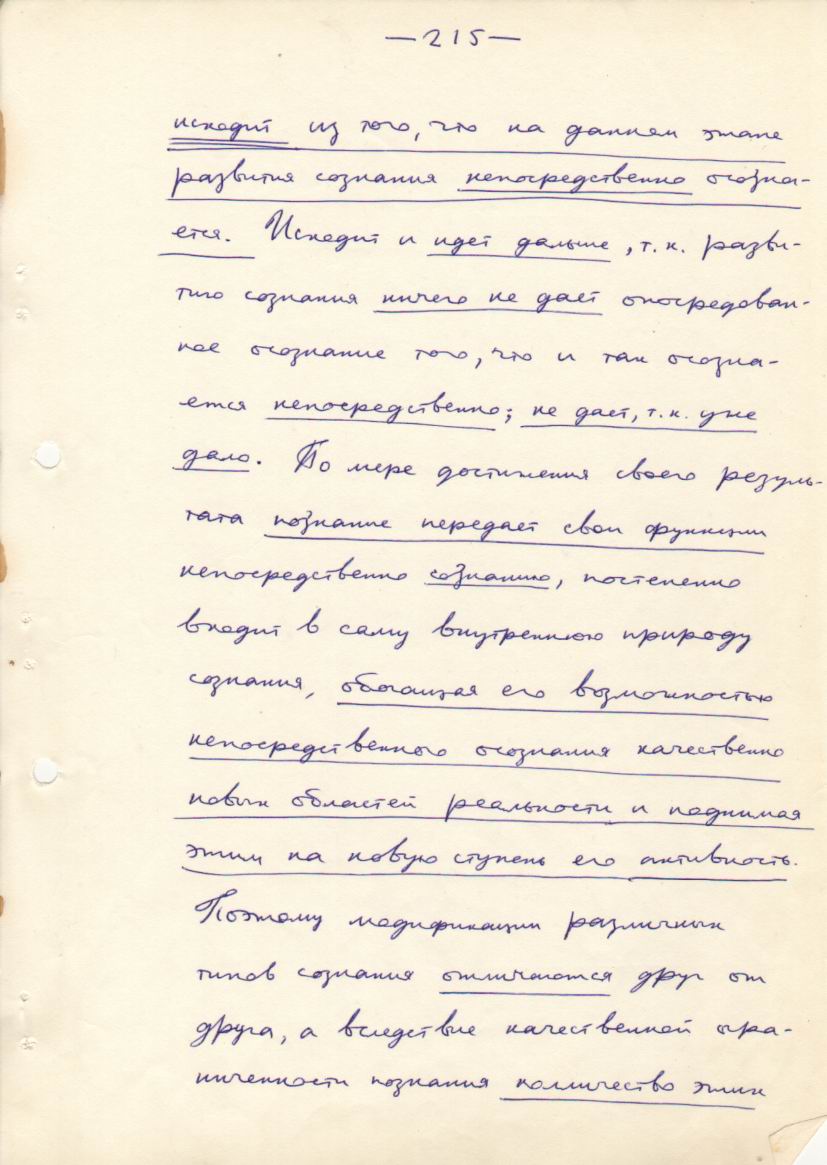 — 215 —
исходит из того, что на данном этапе
развития сознания непосредственно осозна-
ется. Исходит и идет дальше, т.к. разви-
тию сознания ничего не дает опосредован-
ное осознание того, что и так осозна-
ется непосредственно; не дает, т.к. уже
дало. По мере достижения своего резуль-
тата познание передает свои функции
непосредственно сознанию, постепенно
входит в саму внутреннюю природу
сознания, обогащая его возможностью
непосредственного осознания качественно
новых областей реальности и поднимая
этим на новую ступень его активность.
Поэтому модификации различных
типов сознания отличаются друг от
друга, а вследствие качественной огра-
ниченности познания количество этих